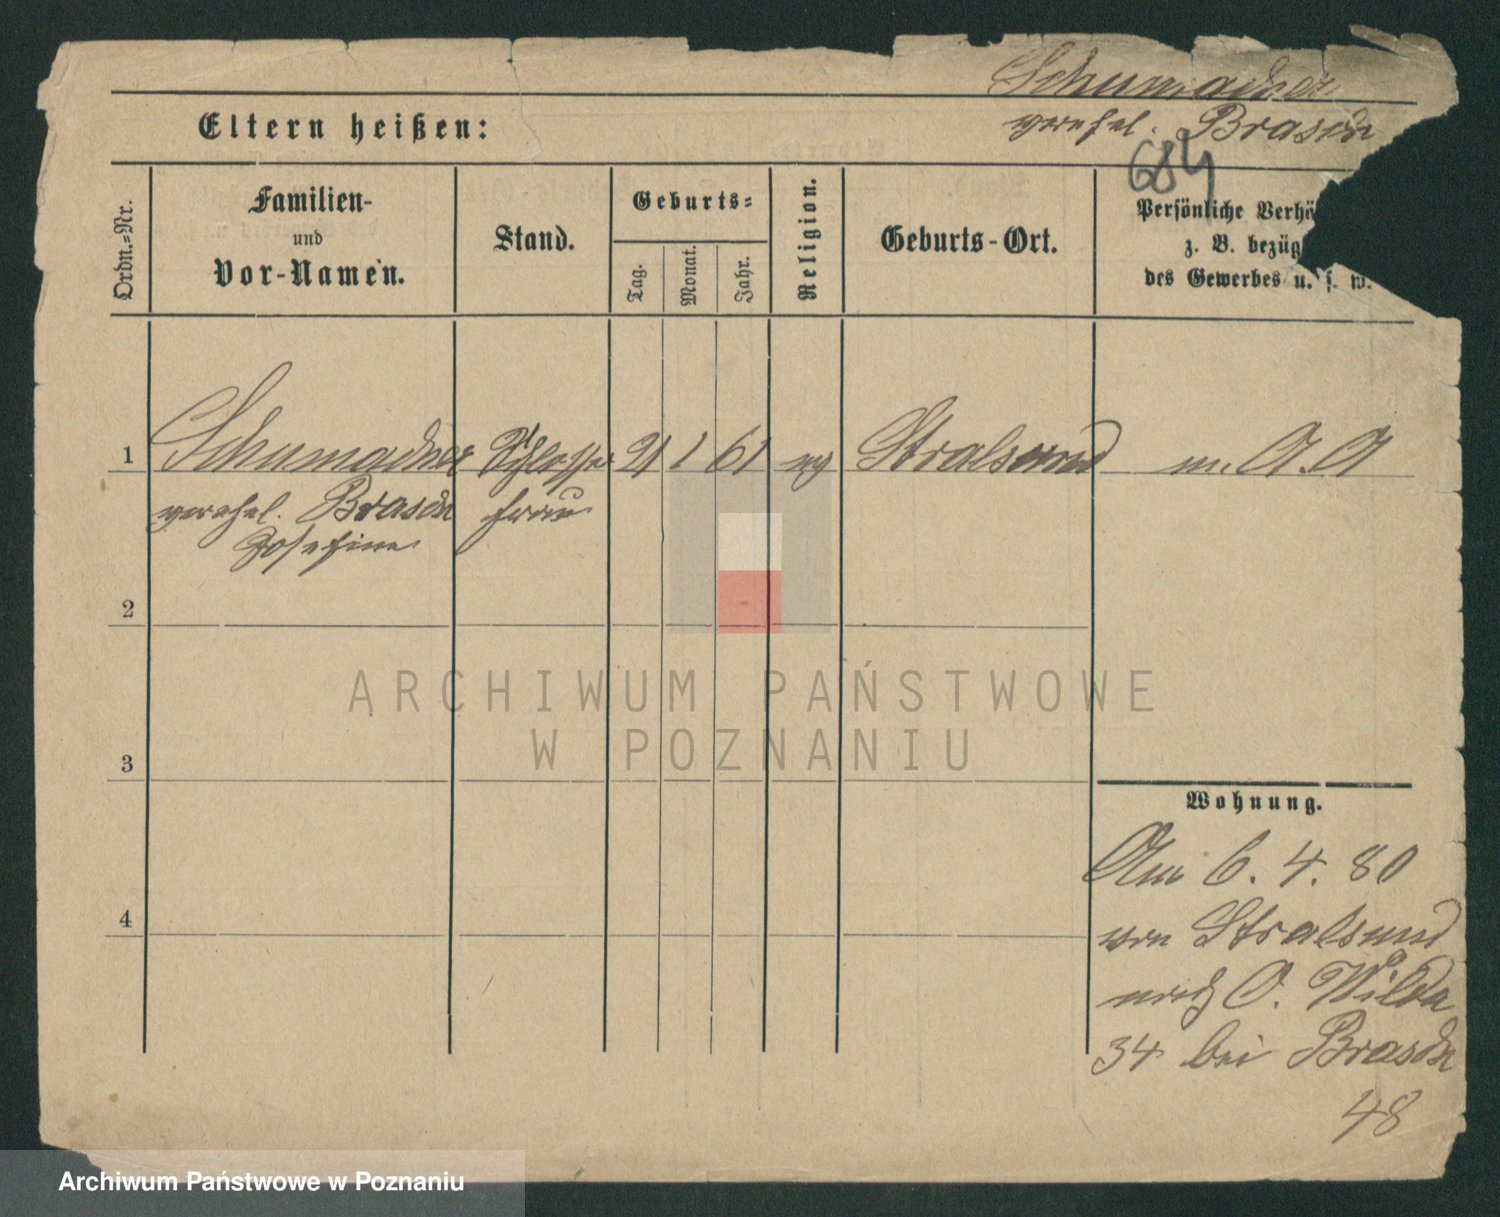 Schumacher
verehel. Brasch
Eltern heißen:
684
Ordn.=Nr.
Familien-
und
Vor-Namen.
Stand.
Geburts=
Tag.
Monat.
Jahr.
Religion.
Geburts-Ort.
Persönliche Verhä
z. B. bezüg
des Gewerbes u. s. w.
1 Schumacher Schlosser 21 1 61 ev Stralsund m. A. A
verehel. Brasch frau
Josefine
2
3
4
Wohnung.
Am 6. 4. 80
von Stralsund
nach O. Wilda
34 bei Brasch
48
ARCHIWUM PAŃSTWOWE
W POZNANIU
Archiwum Państwowe w Poznaniu